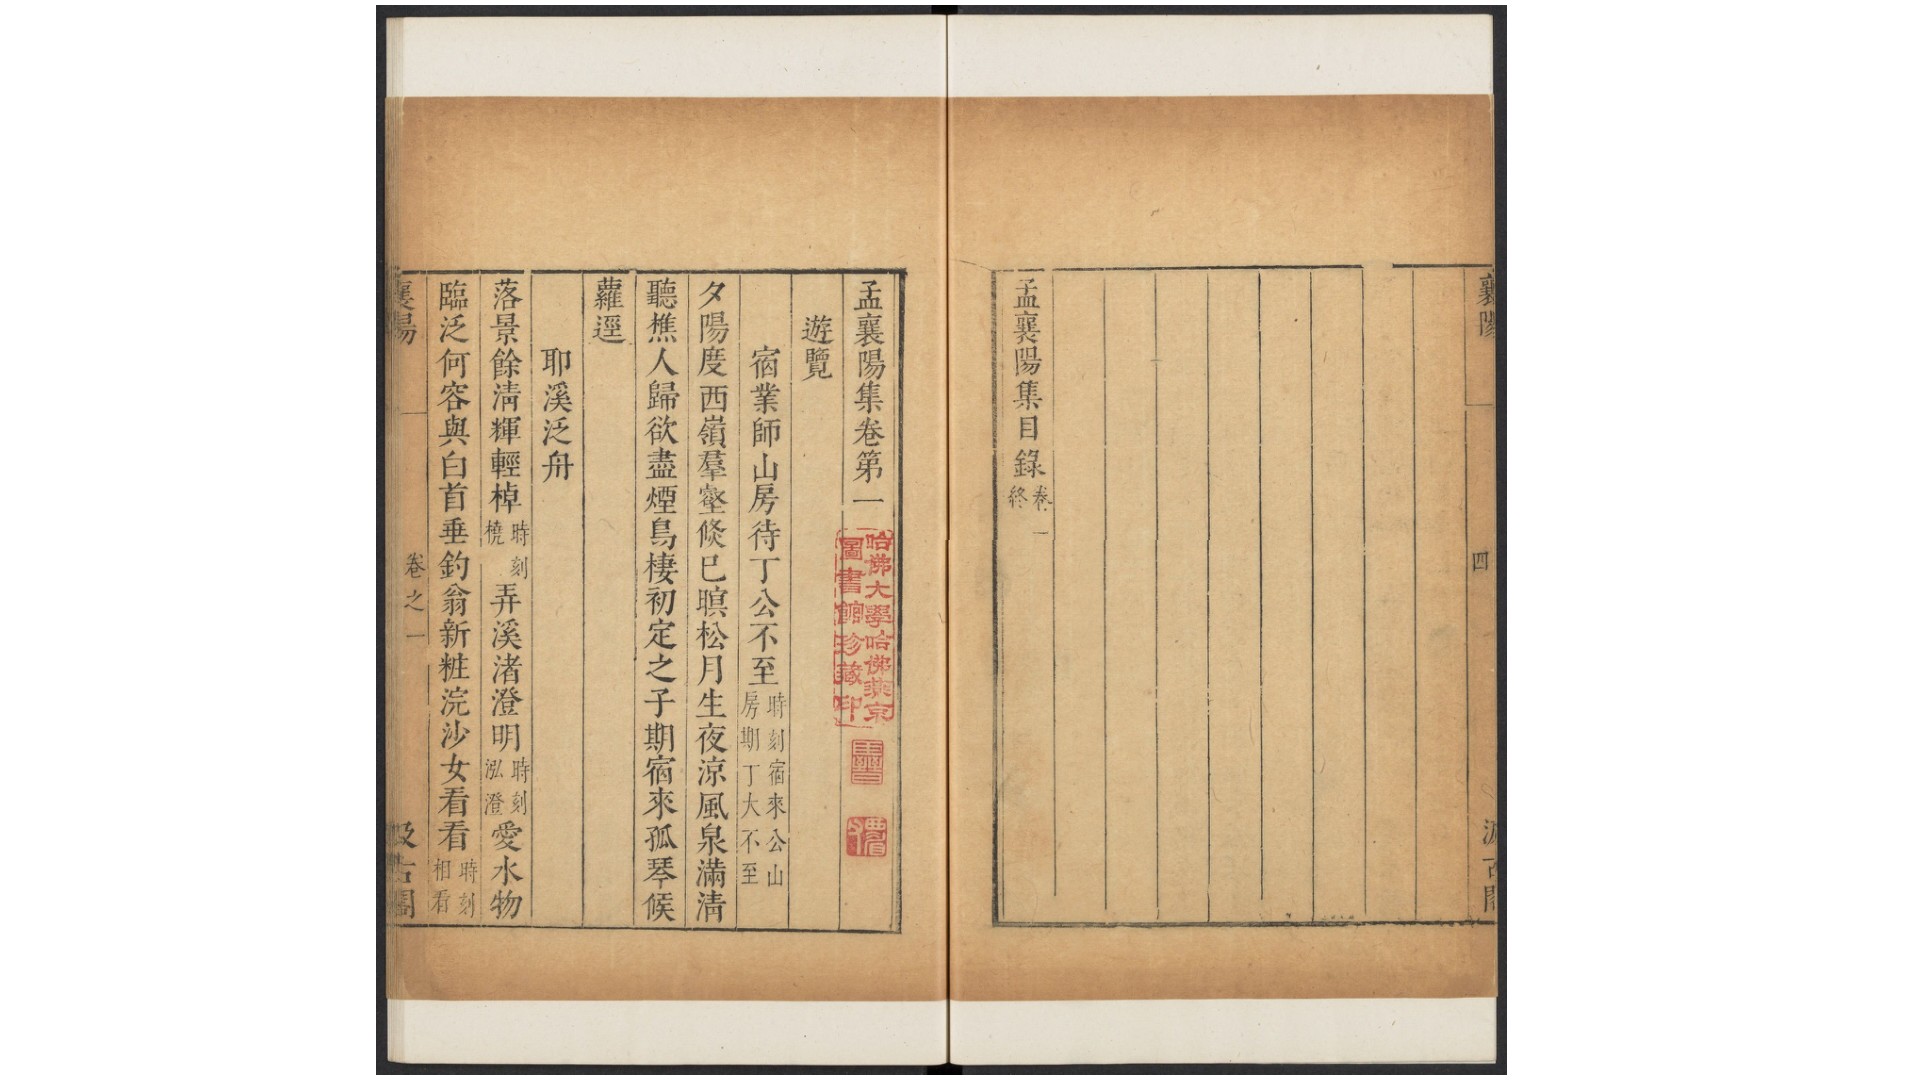 襄陽
四
汲古閣
孟襄陽集目錄
卷一
終
孟襄陽集卷第一
哈佛大學哈佛燕京
圖書館珍藏印
遊覽
宿業師山房待丁公不至時刻宿來公山房期丁大不至
夕陽度西嶺羣壑倐已暝松月生夜涼風泉滿清
聽樵人歸欲盡煙鳥棲初定之子期宿來孤琴候
蘿逕
耶溪泛舟
落景餘清輝輕棹時刻橈弄溪渚澄明時刻泓澄愛水物
臨泛何容與白首垂釣翁新粧浣沙女看看時刻相看
襄陽
卷之一
汲古閣